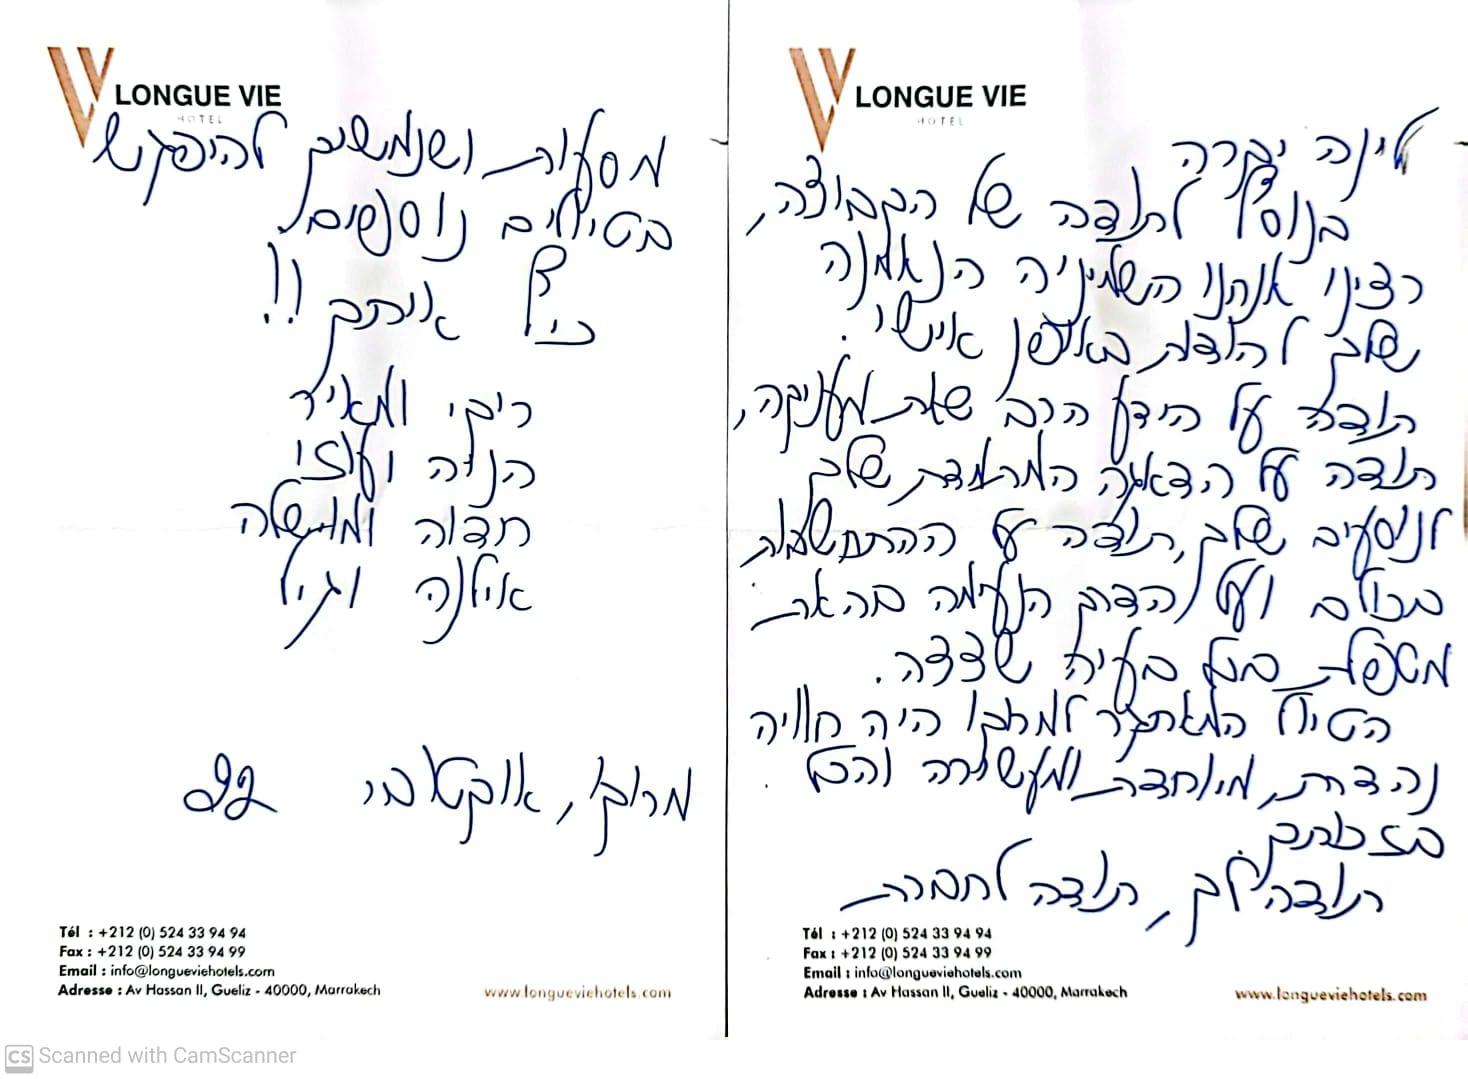 LONGUE VIE
HOTEL
לינה יקרה
בנוסף לתודה של הקבוצה,
רצינו אנחנו השמיניה הנאמנה
שלך להודות באופן אישי.
תודה על הידע הרב שאת מעניקה,
תודה על הדאגה המתמדת שלך
לנוסעים שלך, תודה על ההתחשבות
בכולם ועל הדרך הנעימה בה את
מטפלת בכל בעיה שצצה.
הטיול המאתגר למרוקו היה חוויה
נהדרת, מיוחדת ומעשירה והכל
בזכותך
תודה לך, תודה לחברת
Tél : +212 (0) 524 33 94 94
Fax : +212 (0) 524 33 94 99
Email : info@longueviehotels.com
Adresse : Av Hassan II, Gueliz - 40000, Marrakech
www.longueviehotels.com
LONGUE VIE
HOTEL
מסעות ושנמשיך להיפגש
בטיולים נוספים.
כיף אותך !!
ריקי ומאיר
הניה ועוזי
חדוה ומוישלה
אילנה וגיל
מרוקו, אוקטובר 22
Tél : +212 (0) 524 33 94 94
Fax : +212 (0) 524 33 94 99
Email : info@longueviehotels.com
Adresse : Av Hassan II, Gueliz - 40000, Marrakech
www.longueviehotels.com
CS Scanned with CamScanner